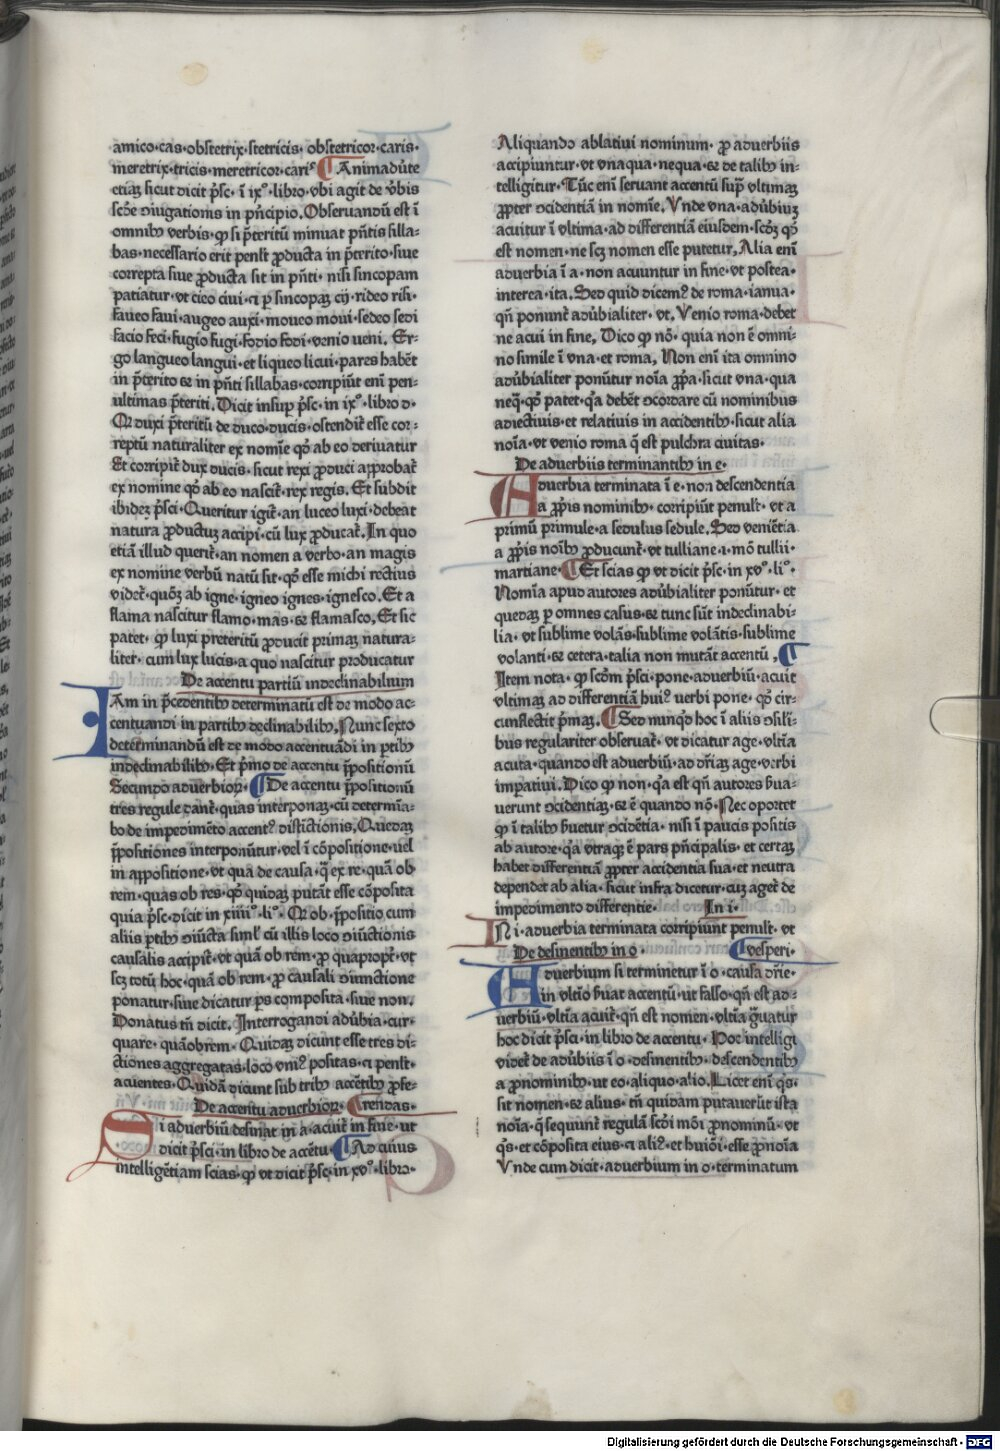 amico·cas·obstetrix·stetricis· obstetricor·caris·
meretrix·tricis·meretricor·cariꝰ ¶ Animadũte
etiaꝫ sicut dicit p̃sc· ĩ ixͦ·libro·vbi agit de v̄bis
Obseruandũ est ĩ
omnibꝰ verbis·ꝙ si p̃teritũ minuat pñtis silla-
bas·necessario erit penl̃t ꝓducta in p̃terito·siue
correpta siue ꝓducta sit in pñti· nisi sincopam
patiatur·vt cieo ciui·ci p sincopaꝫ cij·rideo risi·
faueo faui·augeo auxi·moueo moui·sedeo sedi
facio feci·fugio fugi·fodio fodi·venio ueni. Er-
go langueo langui·et liqueo licui·pares habẽt
in p̃terito ⁊ in pñti sillabas·corripiũt enĩ pen-
ultimas p̃teriti. Dicit insup p̃sc·in ixͦ·libro ꝺ·
Ꝙ duxi p̃teritũ de duco·ducis·ostendit̃ esse cor-
reptũ naturaliter ex nomĩe qꝺ̉ ab eo deriuatur
Et corripit̃ dux ducis·sicut rexi ꝓduci approbat̃
ex nomine qꝺ̉ ab eo nascit̃·rex regis. Et subdit
ibideꝫ p̃sci·Queritur igit̃·an luceo luxi·debeat
natura ꝓductuꝫ accipi·cũ lux ꝓducat̃. In quo
etiã illud querit̃·an nomen a verbo·an magis
ex nomine verbũ natũ sit·qꝺ̉ esse michi rectius
videt̃·quõꝫ ab igne·igneo ignes·ignesco. Et a
flama nascitur flamo·mas·⁊ flamasco. Et sic
patet· ꝙ luxi preteritũ ꝓducit primaꝫ natura-
liter· cum lux lucis·a quo nascitur producatur
De accentu partiũ indeclinabilium
IAm in p̃cedentibꝰ determinatũ est de modo ac-
centuandi in partibꝰ declinabilibꝰ. Nunc sexto
determinandũ est de modo accentuãdi in ptibꝰ
indeclinabilibꝰ. Et p̃mo de accentu p̃positionũ
Secundo aduerbioꝝ· ¶ De accentu p̃positionũ
tres regule dant̃·quas interponaꝫ·cũ determĩa-
bo de impedimẽto accentꝰ distictionis. Quedaꝫ
p̃positiones interponũtur·vel ĩ cõpositione·uel
in appositione·vt quã de causa·q̃ ex re·quã ob
rem·quas ob res·qꝺ̉ quidaꝫ putãt esse cõposita
quia p̃sc·dicit in xiiiiͦ·liͦ· Ꝙ ob·p̃positio cum
aliis ꝑtibꝰ ꝺiũcta siml̃ cũ illis loco ꝺiũctionis
causalis accipit̃·vt quã ob rẽm·ꝓ quapropt̃·vt
scꝫ totũ hoc·quã ob rem·ꝓ causali ꝺiunctione
ponatur·siue dicatur ꝑs composita·siue non.
Donatus tñ dicit. Interrogandi adũbia·cur·
quare·quãobrem· Quidaꝫ dicunt esse tres di-
ctiones aggregatas·loco vniꝰ positas·ci penl̃t·
acuentes·Quidã dicunt sub tribꝰ accẽtibꝰ ꝓfe-
De accentu aduerbioꝝ· ¶ rendas·
SI aduerbiũ desinat in a·acuit̃ in fine·ut
dicit p̃sci·in libro de accẽtu· ¶ Ad cuius
intelligẽtiam scias·ꝙ ut dicit p̃sc·in xvͦ·libro·
Aliquando ablatiui nominum· ꝓ aduerbiis
accipiuntur·vt vnaqua·nequa·⁊ de talibꝰ in-
telligitur· Tũc enĩ seruant accentũ sup̃ vltimaꝫ
ꝓpter ꝺcidentiã in nomĩe. Vnde vna·adũbiuꝫ
acuitur ĩ vltima·ad differentiã eiusdem·scõꝫ qꝺ̉
est nomen·ne scꝫ nomen esse putetur. Alia enĩ
aduerbia ĩ a·non acuuntur in fine·vt postea·
interea·ita. Sed quid dicemꝰ de roma·ianua·
qñ ponunt̃ aduƀialiter·vt. Venio roma·debet
ne acui in fine. Dico ꝙ nõ·quia non ẽ omni-
no simile ĩ vna·et roma. Non enĩ ita omnino
adũbialiter ponũtur noĩa ꝓp̃a·sicut vna·qua
neq̃·qꝺ̉ patet·qa debẽt ꝺcordare cũ nominibus
adiectiuis·et relatiuis in accidentibꝰ·sicut alia
noĩa·vt venio roma q̃ est pulchra ciuitas·
De aduerbiis terminantibꝰ in e·
ADuerbia terminata ĩ e·non descendentia
a ꝓp̃is nominibꝰ·corripiũt penult̃·vt a
primũ primule·a sedulus sedule. Sed veniẽtia
a ꝓp̃is noĩbꝰ ꝓducunt̃·vt tulliane·i·mõ tullii·
martiane· ¶ Et scias ꝙ vt dicit p̃sc·in xvͦ·liͦ·
Nomĩa apud autores adũbialiter ponũtur·et
quedaꝫ p omnes casus·⁊ tunc sũt indeclinabi-
lia·vt sublime volãs·sublime volãtis·sublime
volanti·⁊ cetera·talia non mutãt accentũ. ¶
Item nota·ꝙ scõm p̃sci·pone·aduerbiũ·acuit
vltimaꝫ ad differentiã huiꝰ verbi pone·qꝺ̉ cir-
cunflectit p̃maꝫ. ¶ Sed nunqꝺ hoc ĩ aliis ꝺsili-
bus regulariter obseruat̃·vt dicatur age·vltĩa
acuta·quando est aduerbiũ·ad dr̃iaꝫ age·verbi
imp̃atiui. Dico ꝙ non·qa est qñ autores ẜua-
uerunt ꝺcidentiaꝫ·⁊ ẽ quando nõ· Nec oportet
ꝙ ĩ talibꝰ ẜuetur ꝺcidẽtia·nisi ĩ paucis positis
ab autore·qa vtraqꝫ ẽ pars pñcipalis·et certaꝫ
habet differentiã ꝓpter accidentia sua·et neutra
dependet ab alia·sicut infra dicetur·cuꝫ aget̃ de
impedimento differentie· In i·
IN i·aduerbia terminata corripiunt penult̃·vt
De desinentibꝰ in o ¶ vesperi·
ADuerbium si terminetur ĩ o·causa dr̃ie·
in vltĩo ẜuat accentũ·ut falso·qñ est ad-
uerbiũ·vltĩa acuit̃·qñ est nomen·vltĩa g̃uatur
hoc dicit p̃sci·in libro de accentu· Hoc intelligi
videt̃ de adũbiis ĩ o·desinentibꝰ·descendentibꝰ
a ꝓnominibꝰ·ut eo·aliquo·alio. Licet enĩ qͥs·
sit nomen·⁊ alius·tñ quidam putauerũt ista
noĩa·q̃ sequunt̃ regulã scđi mõi ꝓnominũ·vt
qͥs·et cõposita eius·ci aliꝰ·et huiõi·esse ꝓnoĩa
Vnde cum dicit·aduerbium in o·terminatum
Digitalisierung gefördert durch die Deutsche Forschungsgemeinschaft · DFG